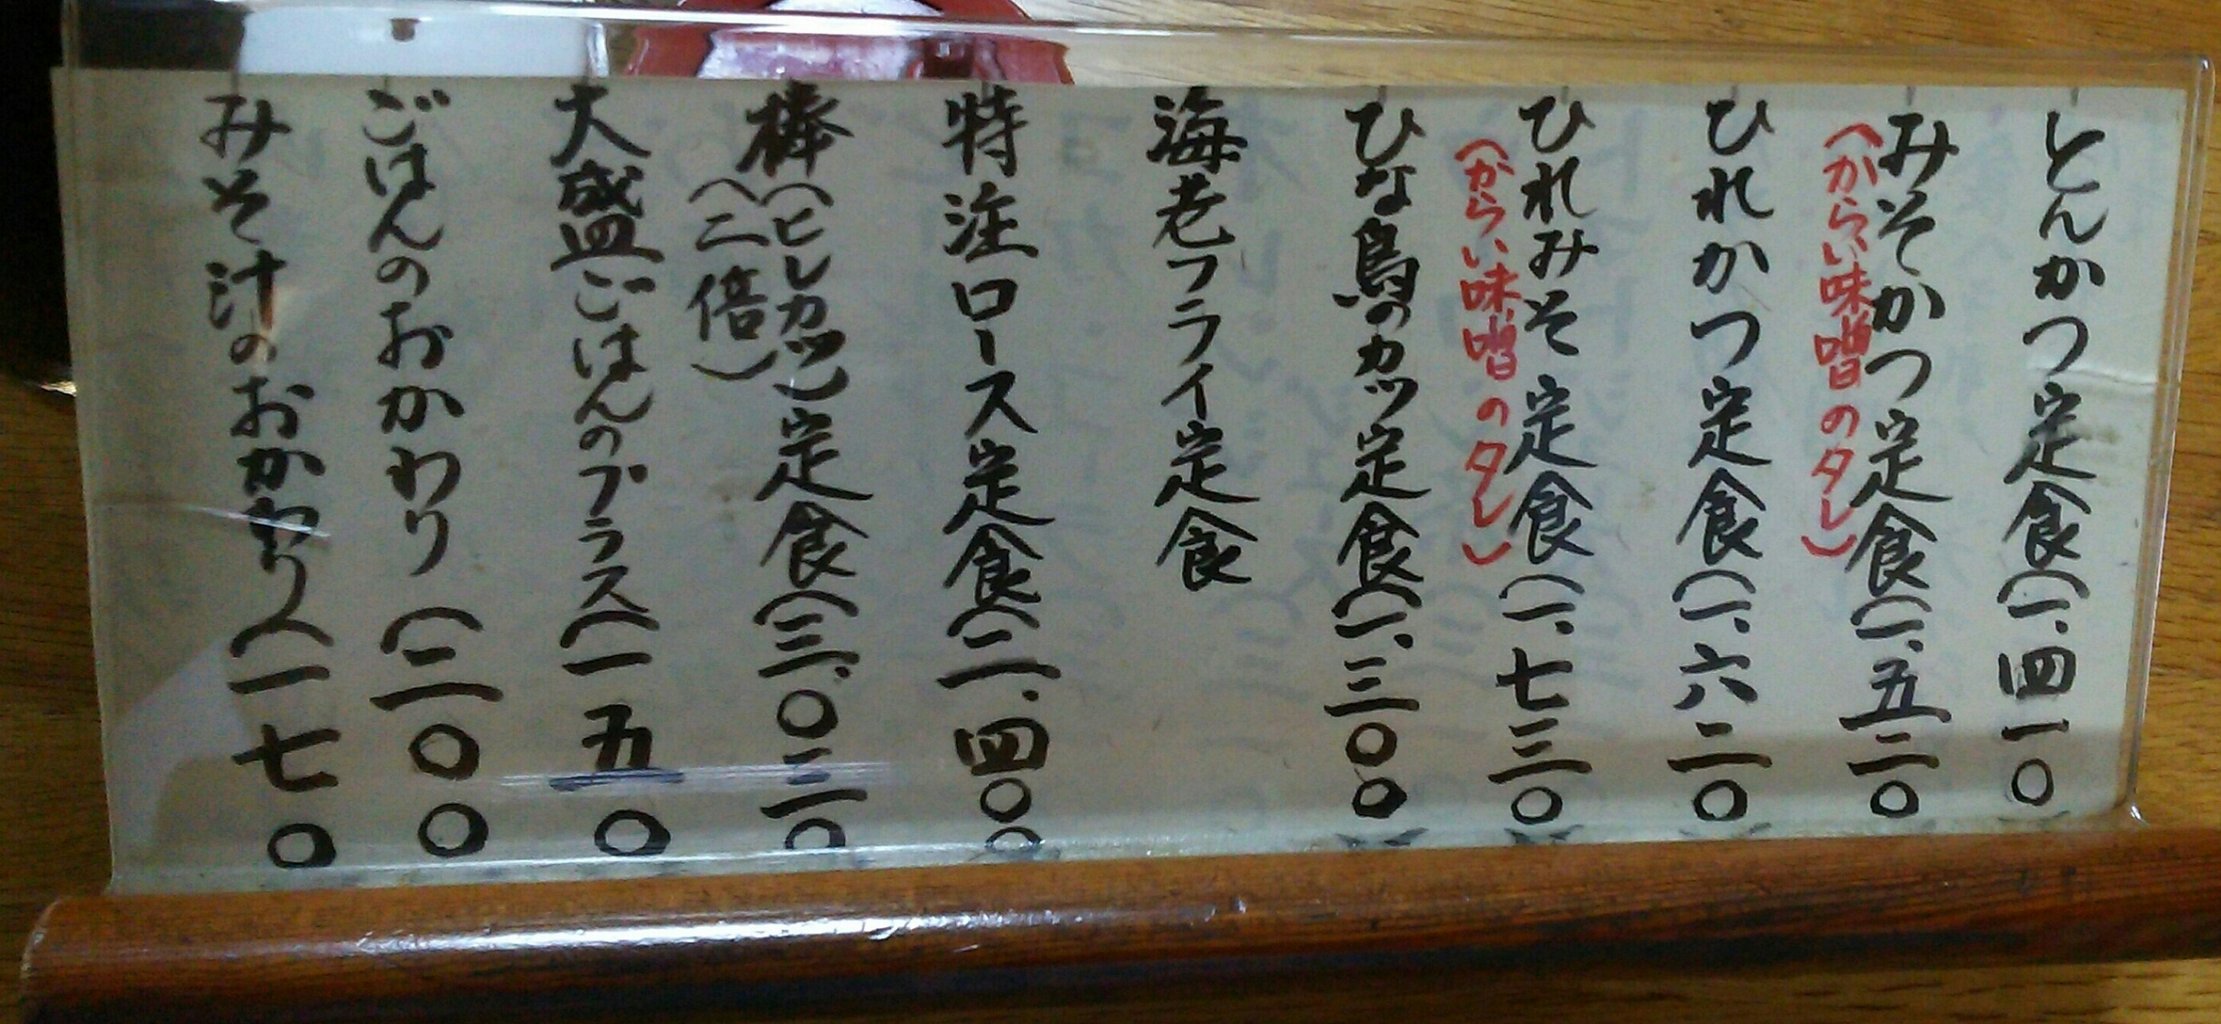 とんかつ定食(一、四一〇
みそかつ定食(一、五二〇
(からい味噌のタレ)
ひれかつ定食(一、六二〇
ひれみそ定食(一、七三〇
(からい味噌のタレ)
ひな鳥のカツ定食(一、三〇〇
海老フライ定食
特注ロース定食(二、四〇〇
棒(ヒレカツ)定食(三、〇二〇
(二倍)
大盛ごはんのプラス(一五〇
ごはんのおかわり(二〇〇
みそ汁のおかわり(一七〇